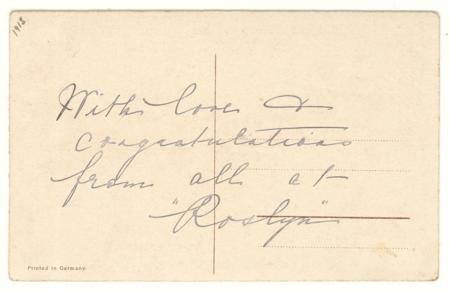 1912
With love &
congratulations
from all at
"Roslyn"
Printed in Germany.